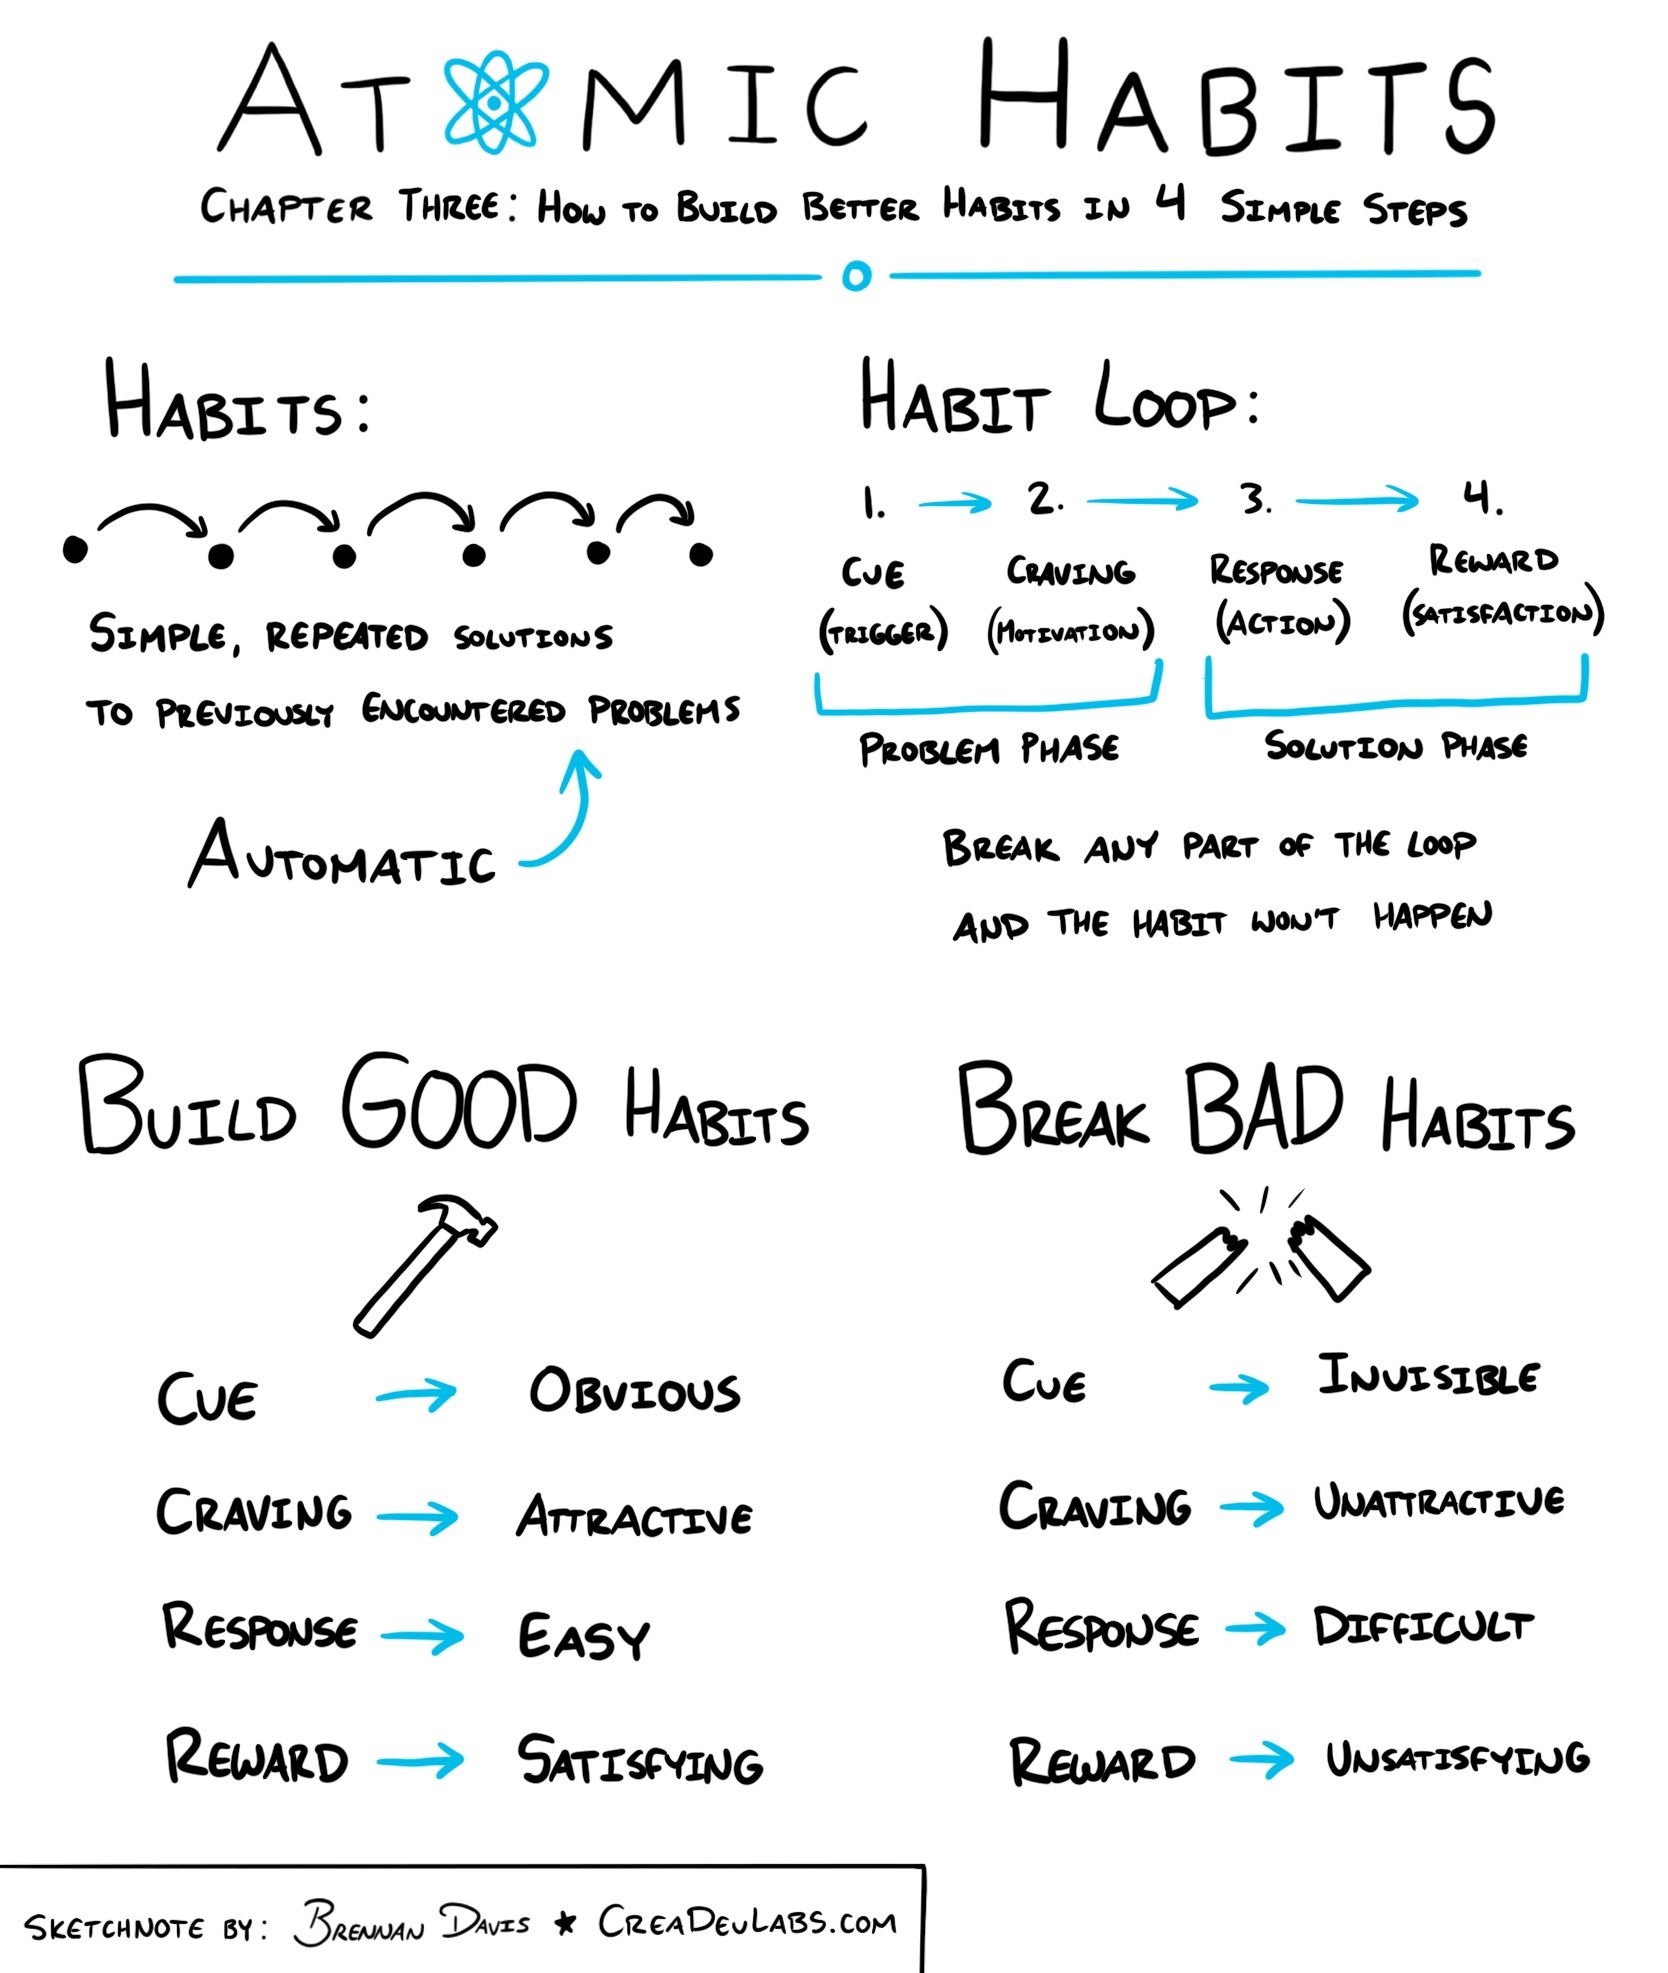 ATOMIC HABITS
CHAPTER THREE: HOW TO BUILD BETTER HABITS IN 4 SIMPLE STEPS
HABITS:
SIMPLE, REPEATED SOLUTIONS
TO PREVIOUSLY ENCOUNTERED PROBLEMS
AUTOMATIC
HABIT LOOP:
1. 2. 3. 4.
CUE CRAVING RESPONSE REWARD
(TRIGGER) (MOTIVATION) (ACTION) (SATISFACTION)
PROBLEM PHASE SOLUTION PHASE
BREAK ANY PART OF THE LOOP
AND THE HABIT WON'T HAPPEN
BUILD GOOD HABITS
CUE → OBVIOUS
CRAVING → ATTRACTIVE
RESPONSE → EASY
REWARD → SATISFYING
BREAK BAD HABITS
CUE → INVISIBLE
CRAVING → UNATTRACTIVE
RESPONSE → DIFFICULT
REWARD → UNSATISFYING
SKETCHNOTE BY: BRENNAN DAVIS ★ CREADEVLABS.COM